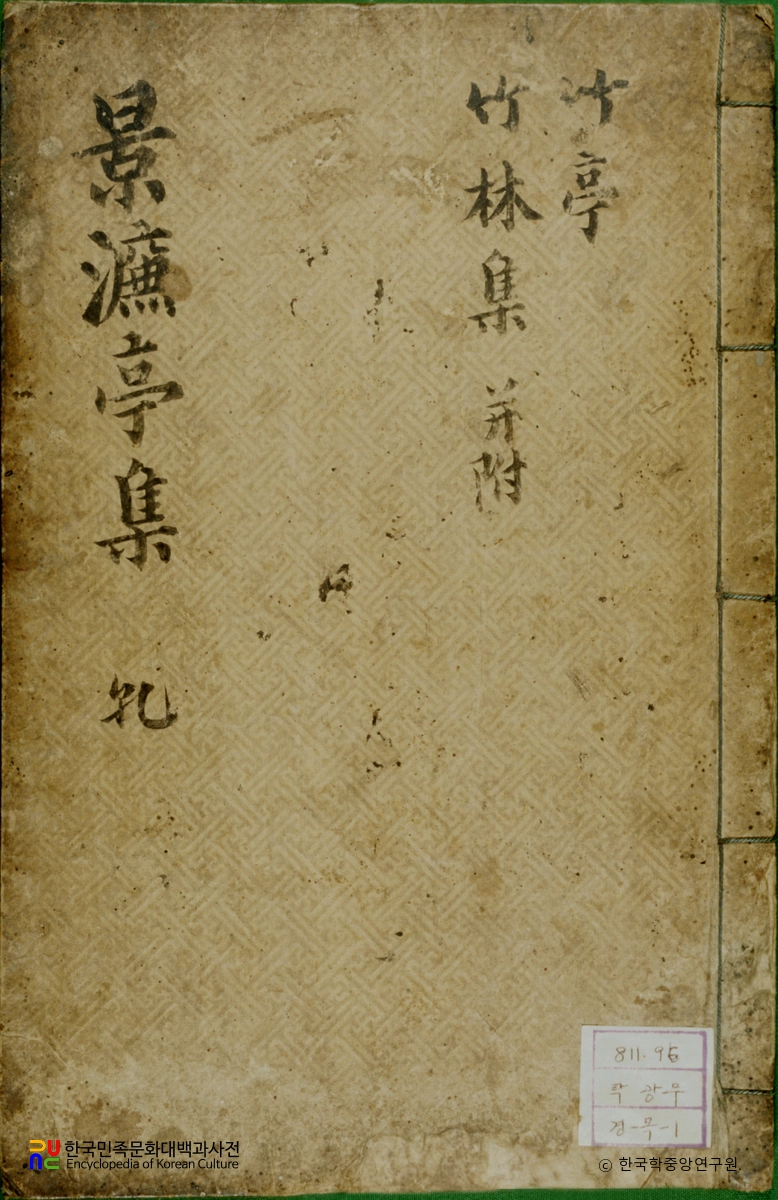 竹亭
竹林集 并附
景濂亭集 乹
811.96
탁광무
경-목-1
한국민족문화대백과사전
Encyclopedia of Korean Culture
ⓒ 한국학중앙연구원